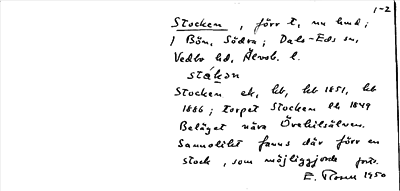 1-2
Stocken, förr t, nu hmd;
1 Bön. Södra; Dals-Eds sn,
Vedbo hd, Älvsb. l.
stákən
Stocken ek, kb, kb 1851, kb
1886; torpet Stocken lk 1849
Beläget nära Överbilsälven.
Sannolikt fanns där förr en
stock, som möjliggjorde
E. 1950